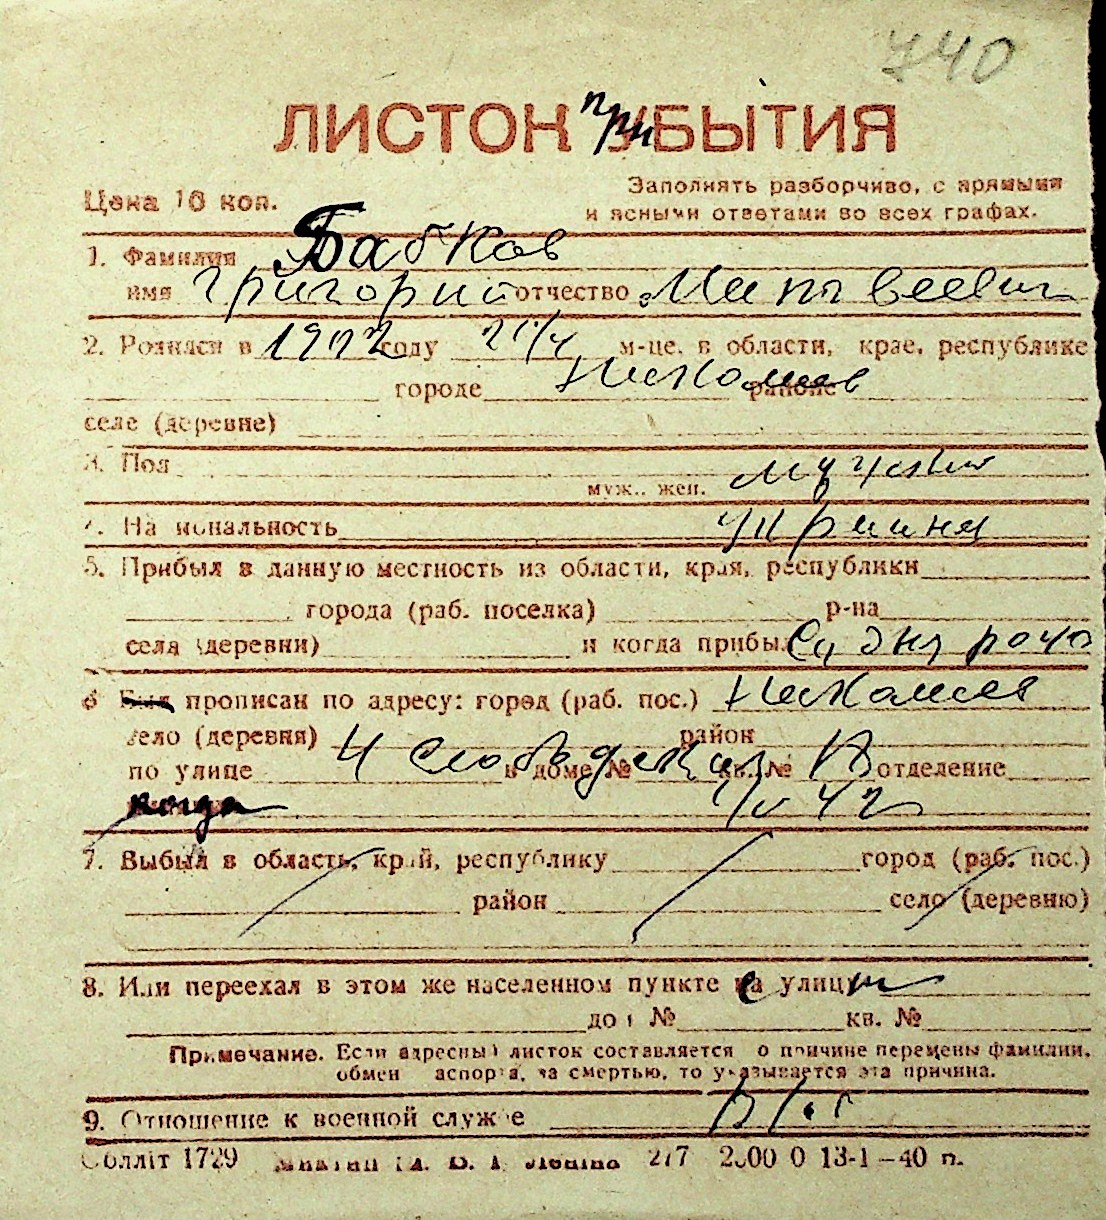 740
ЛИСТОКприБЫТИЯ
Цена 10 коп.
Заполнять разборчиво, с прямыми
и ясными ответами во всех графах.
1. Фамилия Бабков
имя Григорий отчество Матвеевич
2. Родился в 1902 году 21/4 м-це, в области, крае, республике
городе Николаев районе
селе (деревне)
3. Пол муж., жен. мужской
4. Национальность украинец
5. Прибыл в данную местность из области, края, республики
города (раб. поселка) р-на
села (деревни) и когда прибыл Со дня рожд
6 Был прописан по адресу: город (раб. пос.) Николаев
село (деревня) район
по улице 4 Слободская в доме № кв. № отделение
когда 42
7. Выбыл в область, край, республику город (раб. пос.)
район село (деревню)
8. Или переехал в этом же населенном пункте с улицы
дом № кв. №
Примечание. Если адресный листок составляется по причине перемены фамилии,
обмен паспорта, за смертью, то указывается эта причина.
9. Отношение к военной службе
Обллiт 1729 277 2000 0 13-1-40 п.